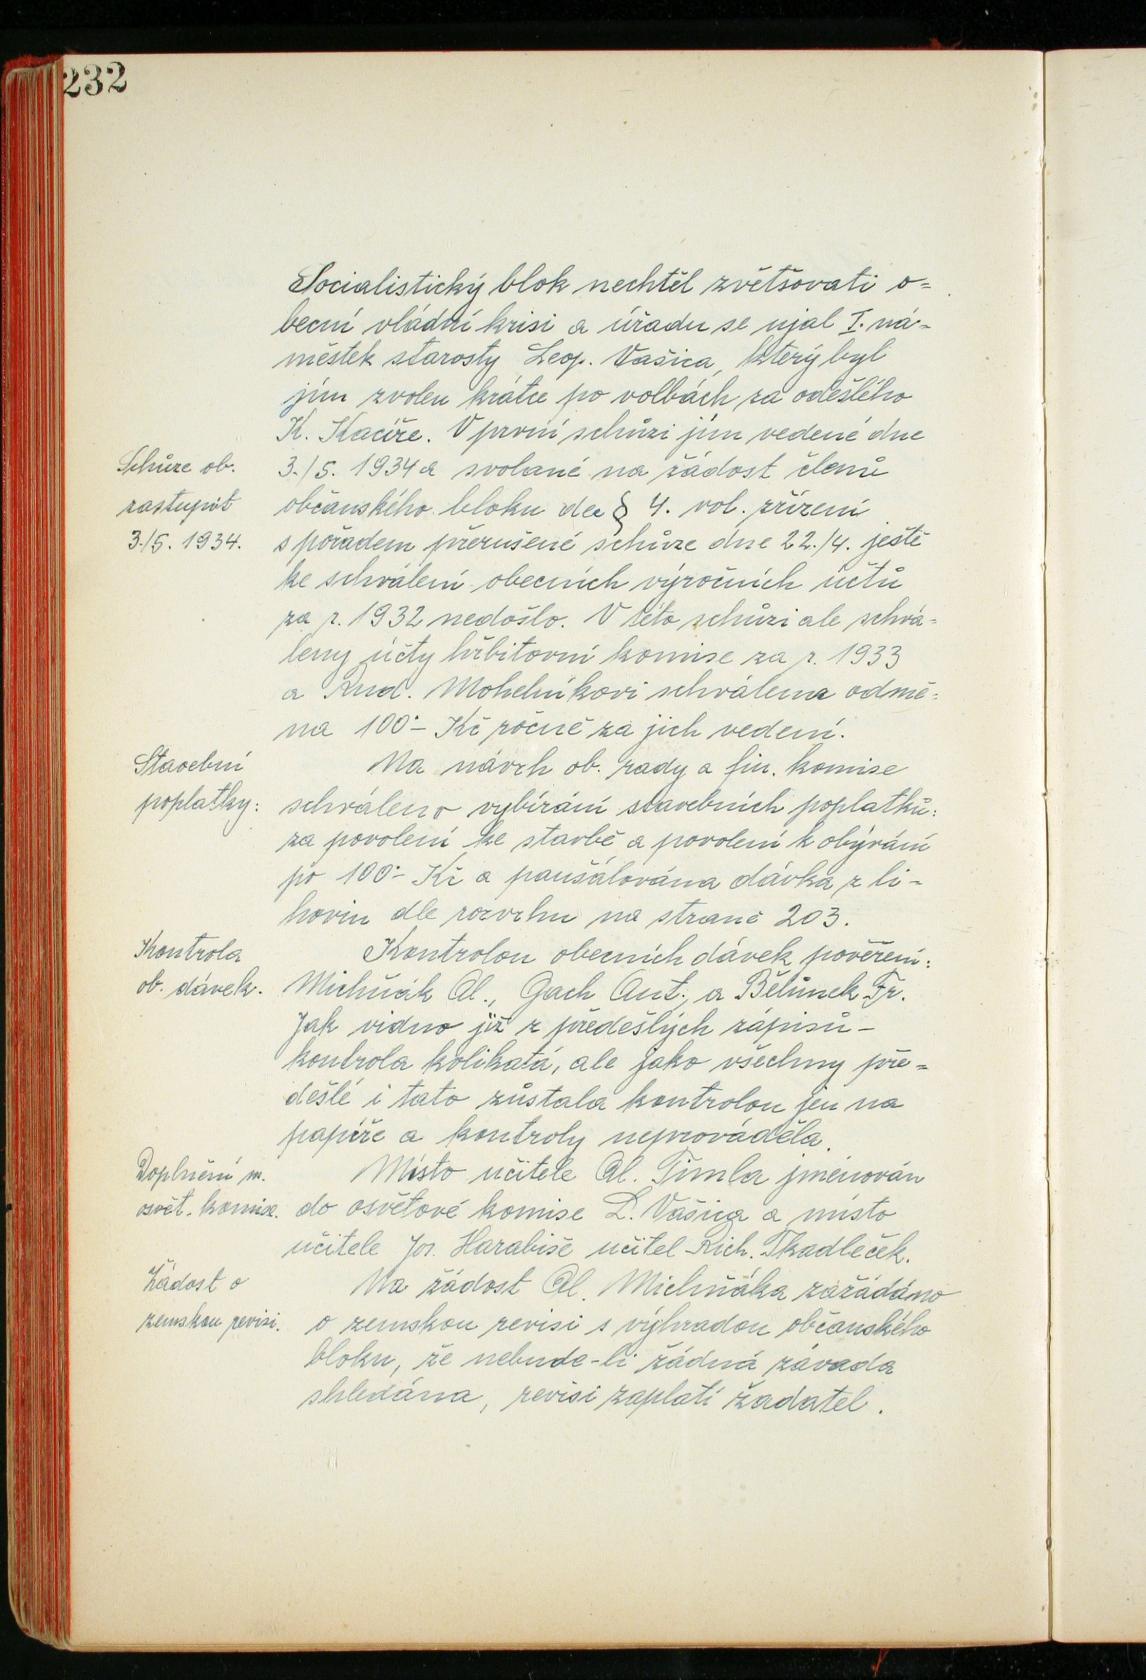 232
Socialistický blok nechtěl zvětšovati o=
becní vládní krisi a úřadu se ujal I. ná-
městek starosty Leop. Vašica, který byl
jím zvolen krátce po volbách za odešlého
K. Kacíře. V první schůzi jím vedené dne
Schůze ob.
zastupit
3./5. 1934.
3./5. 1934 a svolané na žádost členů
občanského bloku dle § 4. vol. zřízení
s pořadem přerušené schůze dne 22./4. ještě
ke schválení obecních výročních účtů
za r. 1932 nedošlo. V této schůzi ale schvá-
leny účty hřbitovní komise za r. 1933
a Rud. Mohelníkovi schválena odmě-
na 100·- Kč ročně za jich vedení.
Stavební
poplatky:
Na návrh ob. rady a fin. komise
schváleno vybírání stavebních poplatků:
za povolení ke stavbě a povolení k obývání
po 100·- Kč a paušálována dávka z li-
hovin dle rozvrhu na straně 203.
Kontrola
ob. dávek.
Kontrolou obecních dávek pověřeni:
Michňák Al., Gach Ant., a Bělůnek Fr.
Jak vidno již z předešlých zápisů -
kontrola kolikatá, ale jako všechny pře-
dešlé i tato zůstala kontrolou jen na
papíře a kontroly neprováděla.
Doplnění m.
osvět. komise.
Místo učitele Al. Šimla jmenován
do osvětové komise L. Vašica a místo
učitele Jos. Harabiše učitel Rich. Tkadleček.
Žádost o
zemskou revisi.
Na žádost Al. Michňáka zažádáno
o zemskou revisi s výhradou občanského
bloku, že nebude-li žádná závada
shledána, revisi zaplatí žadatel.